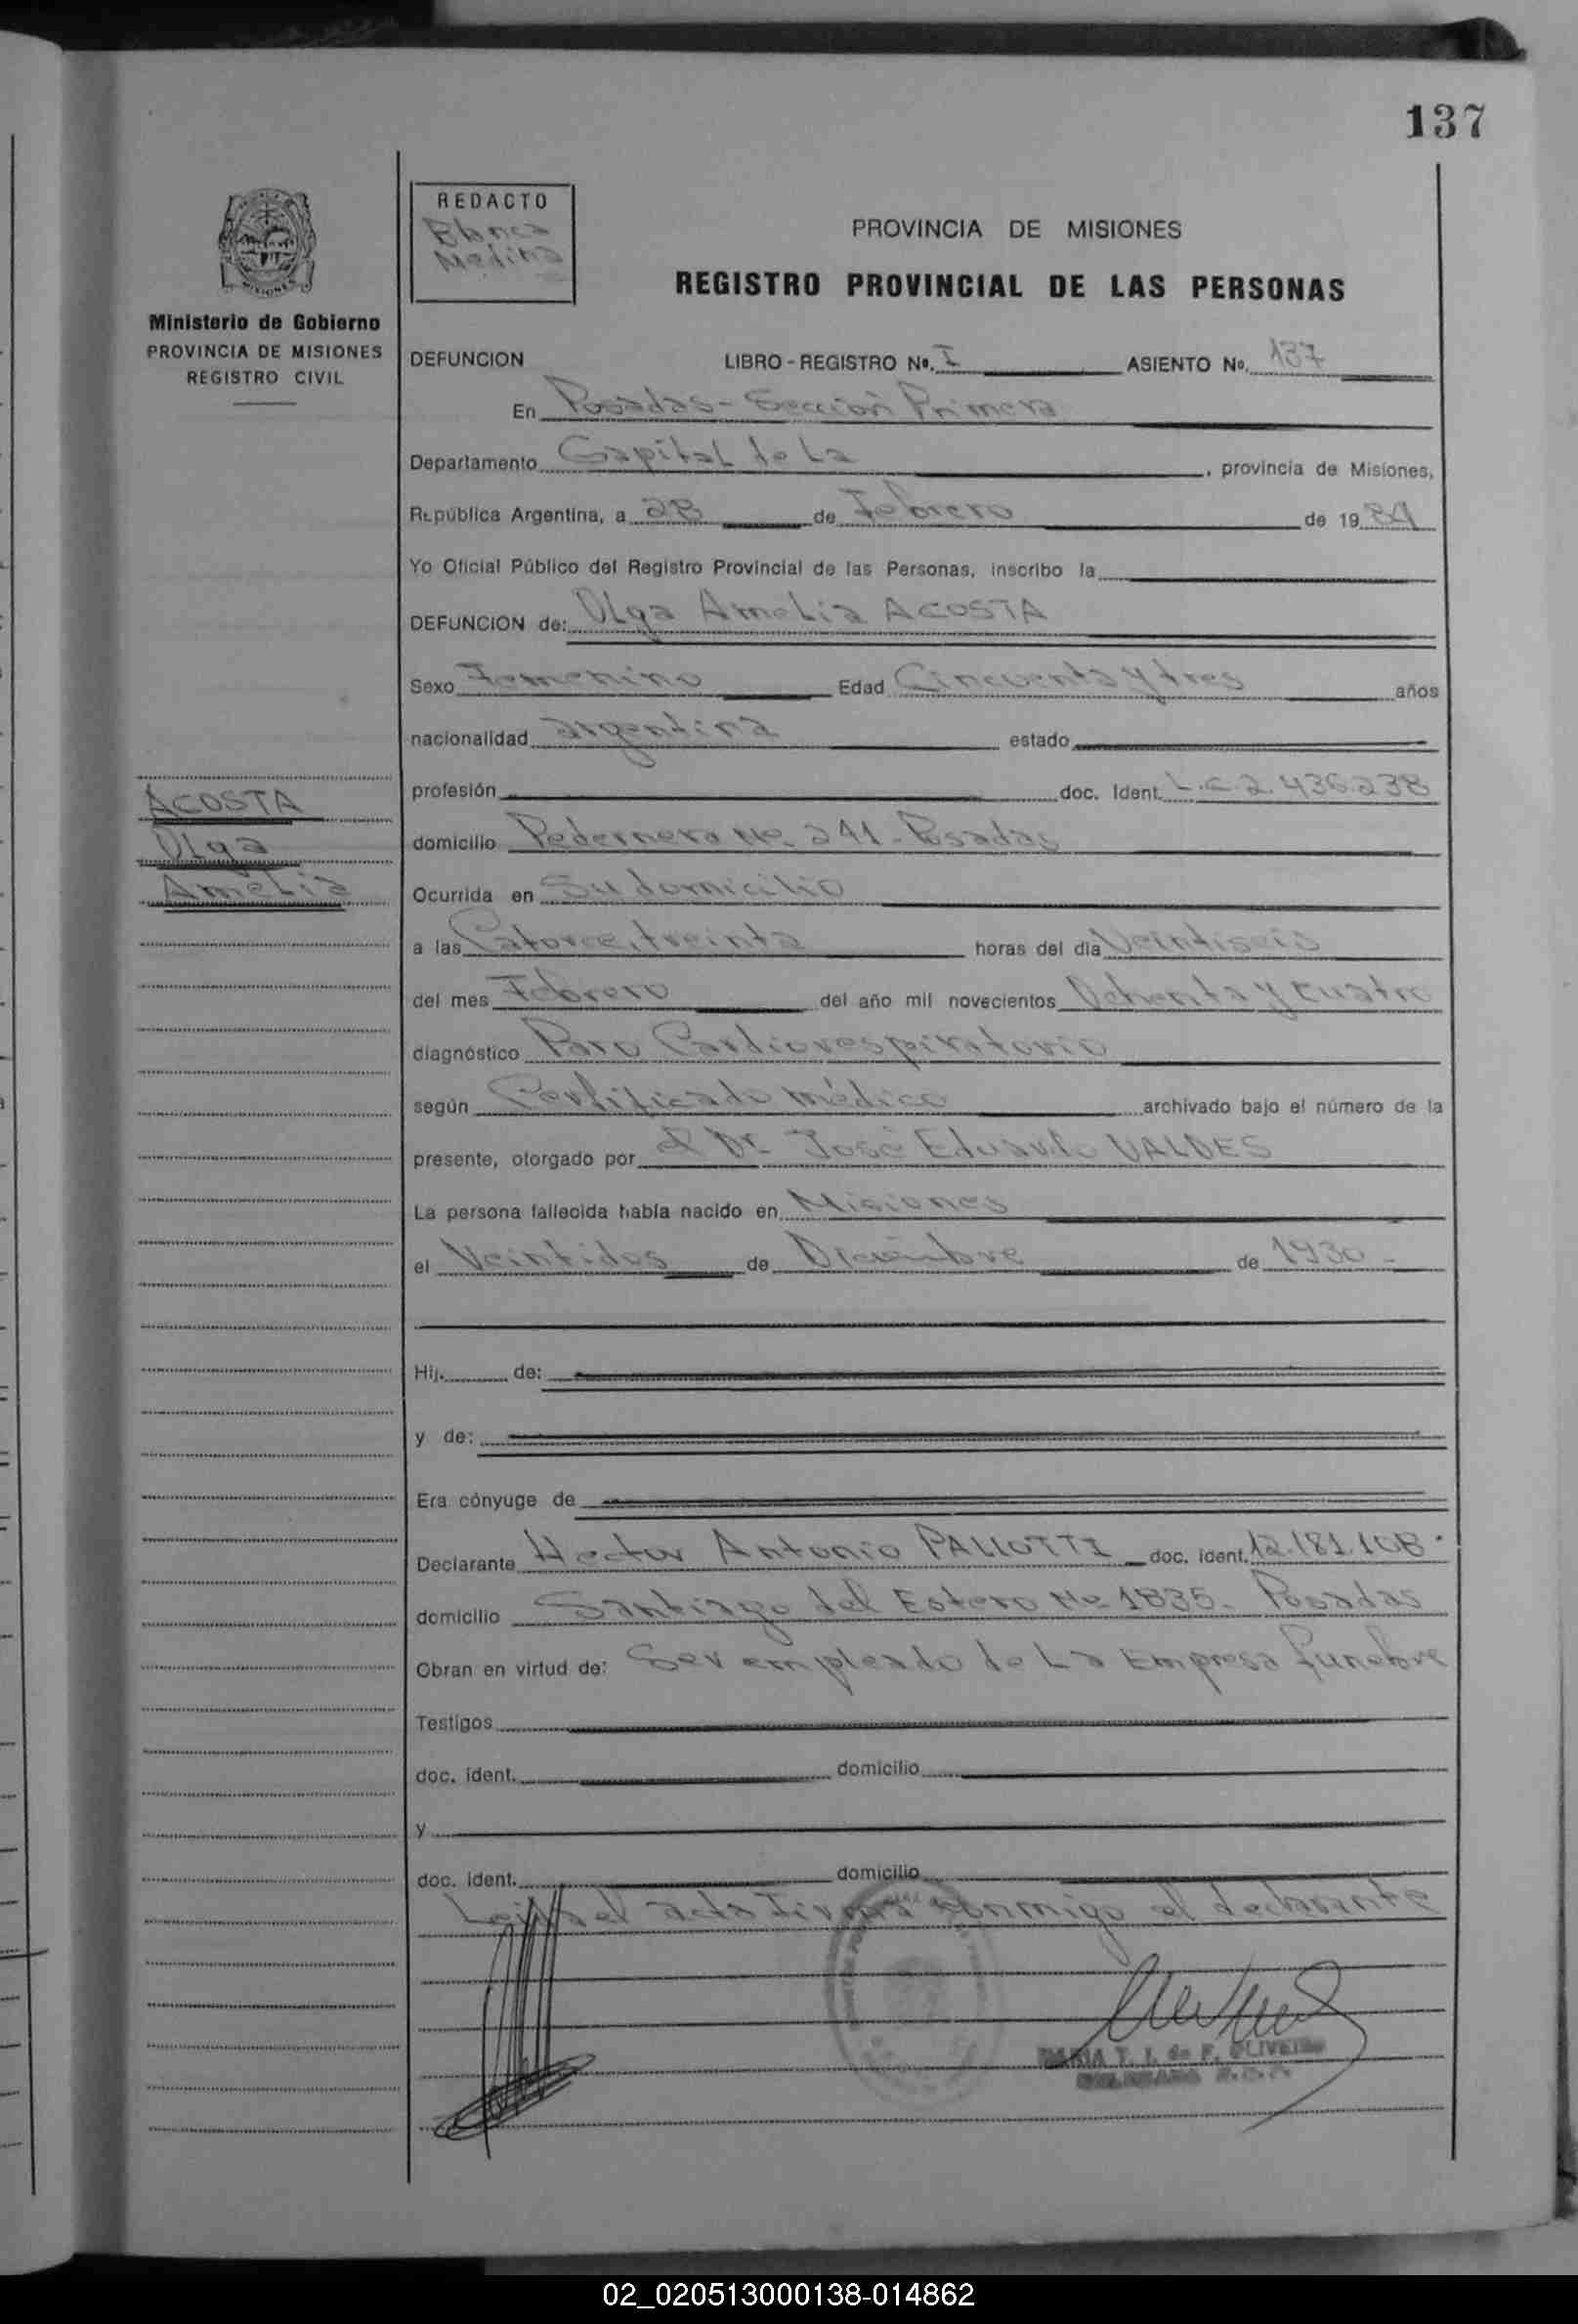 137
REDACTO
Blanca
Medina
PROVINCIA DE MISIONES
REGISTRO PROVINCIAL DE LAS PERSONAS
MISIONES
Ministerio de Gobierno
PROVINCIA DE MISIONES
REGISTRO CIVIL
DEFUNCION LIBRO-REGISTRO Nº. I ASIENTO Nº. 137
En Posadas - Sección Primera
Departamento Capital de La, provincia de Misiones,
República Argentina, a 28 de Febrero de 1984
Yo Oficial Público del Registro Provincial de las Personas, inscribo la
DEFUNCION de: Olga Amelia ACOSTA
Sexo Femenino Edad Cincuenta y tres años
nacionalidad argentina estado
profesión doc. Ident. L.C. 2.436.238
ACOSTA
Olga
Amelia
domicilio Pedernera Nº 241 - Posadas
Ocurrida en Su domicilio
a las Catorce, treinta horas del día Veintiseis
del mes Febrero del año mil novecientos Ochenta y cuatro
diagnóstico Paro Cardiorespiratorio
según Certificado médico archivado bajo el número de la
presente, otorgado por el Dr. José Eduardo VALDES
La persona fallecida había nacido en Misiones
el Veintidos de Diciembre de 1930 -
Hij. de:
y de:
Era cónyuge de
Declarante Hector Antonio PALLOTTI doc. ident. 12.181.108
domicilio Santiago del Estero Nº 1835. Posadas
Obran en virtud de: Ser empleado de La Empresa funebre
Testigos
doc. ident. domicilio
y
doc. ident. domicilio
Leída el acta Firma conmigo el declarante
MARIA T. I. de F. OLIVEIRA
02_020513000138-014862